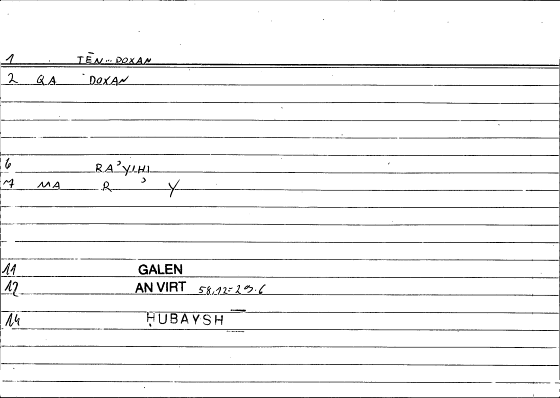 1 TĒN DOXAN
2 QA DOXAN
6 RAʾYIHI
7 MA R ʾ Y
11 GALEN
12 AN VIRT 58,12-29.6
14 ḤUBAYSH